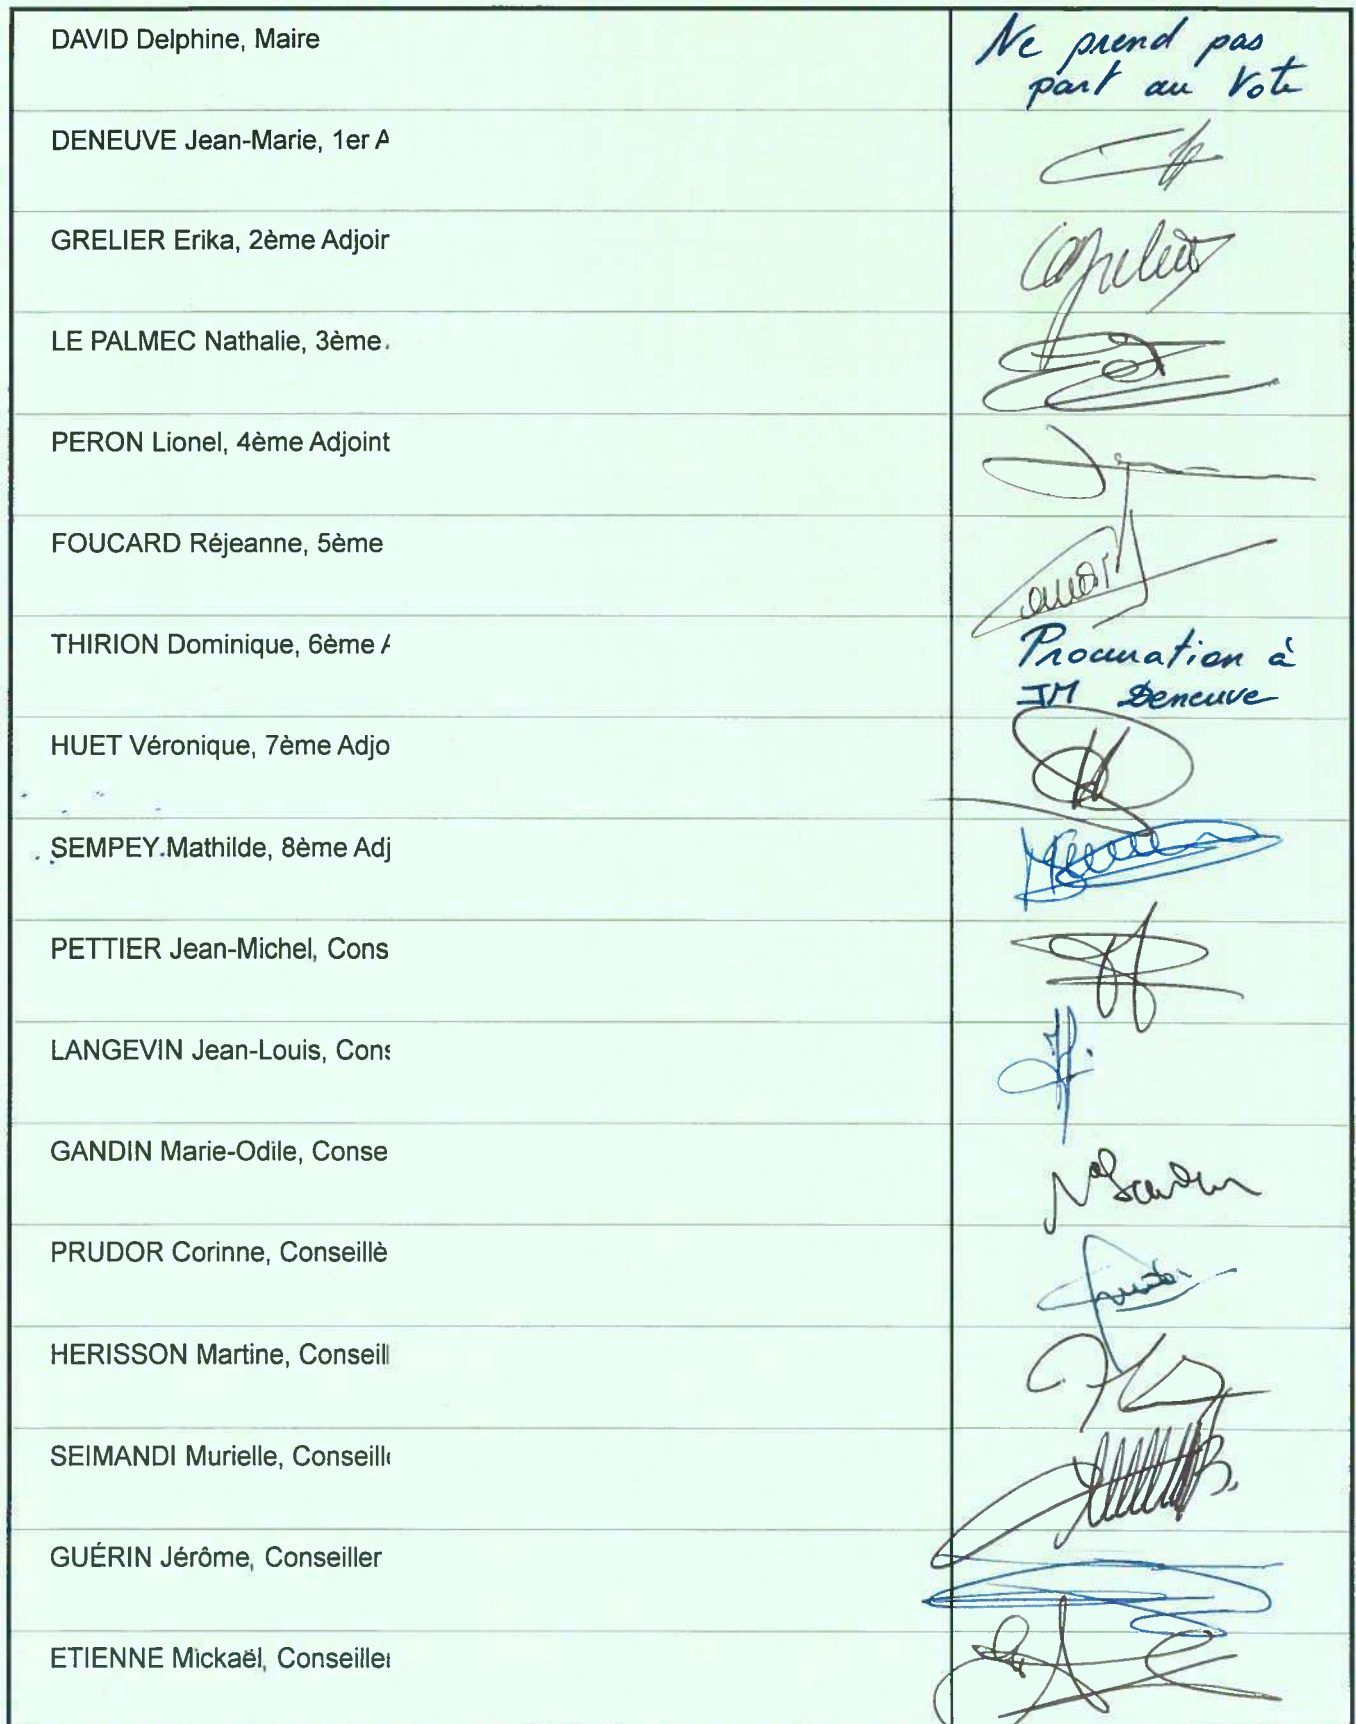 DAVID Delphine, Maire
Ne prend pas
part au Vote
DENEUVE Jean-Marie, 1er A
GRELIER Erika, 2ème Adjoir
LE PALMEC Nathalie, 3ème
PERON Lionel, 4ème Adjoint
FOUCARD Réjeanne, 5ème
THIRION Dominique, 6ème A
Procuration à
JM Deneuve
HUET Véronique, 7ème Adjo
SEMPEY Mathilde, 8ème Adj
PETTIER Jean-Michel, Cons
LANGEVIN Jean-Louis, Cons
GANDIN Marie-Odile, Conse
PRUDOR Corinne, Conseillè
HERISSON Martine, Conseill
SEIMANDI Murielle, Conseillè
GUÉRIN Jérôme, Conseiller
ETIENNE Mickaël, Conseiller